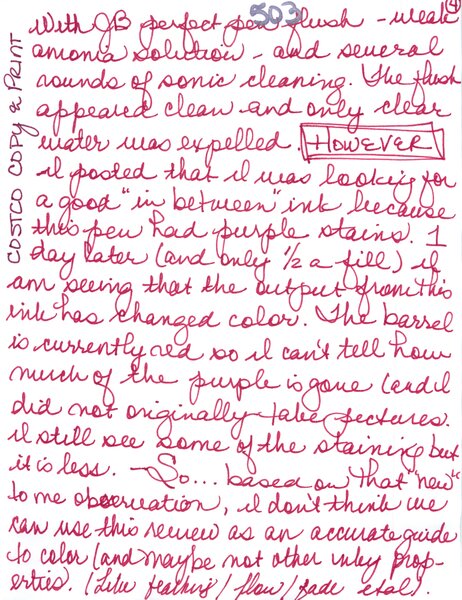 503
4
With GB perfect pen flush - weak
amonia solution - and several
rounds of sonic cleaning. The flush
appeared clean and only clear
water was expelled. HOWEVER
I posted that I was looking for
a good "in between" ink because
this pen had purple stains. 1
day later (and only 1/2 a fill) I
am seeing that the output from this
ink has changed color. The barrel
is currently red so I can't tell how
much of the purple is gone (and I
did not originally take pictures.
I still see some of the staining but
it is less. - So... based on that "new"
to me observation, I don't think we
can use this review as an accurate guide
to color (and maybe not other inky prop-
erties. (Like feathing / flow / fade etal).
COSTCO COPY & PRINT